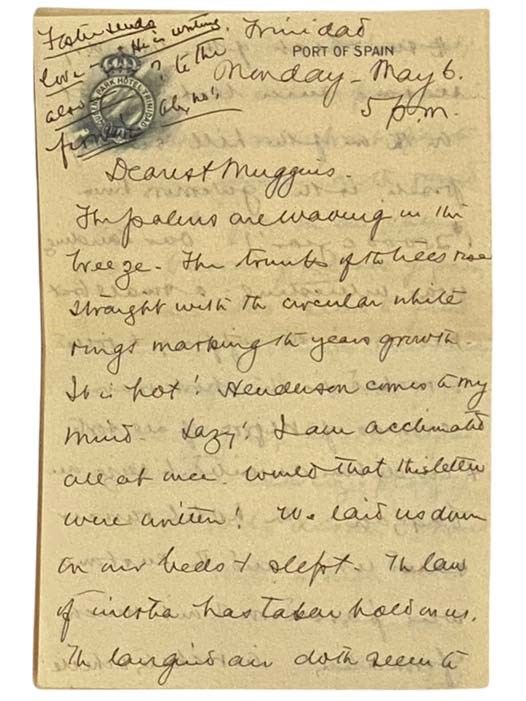 Foster sends
love - He is writing
also ? to the
Oh, no!
QUEEN'S PARK HOTEL TRINIDAD
Trinidad
PORT OF SPAIN
Monday - May 6.
5 p.m.
Dearest Muggins.
The palms are waving in the
breeze - The trunks of the trees rise
straight with the circular white
rings marking the years growth.
It is hot! Henderson comes to my
mind - Lazy! I am acclimated
all at once. Would that this letter
were written! We laid us down
on our beds & slept. The law
of inertia has taken hold on us.
The languid air doth seem to